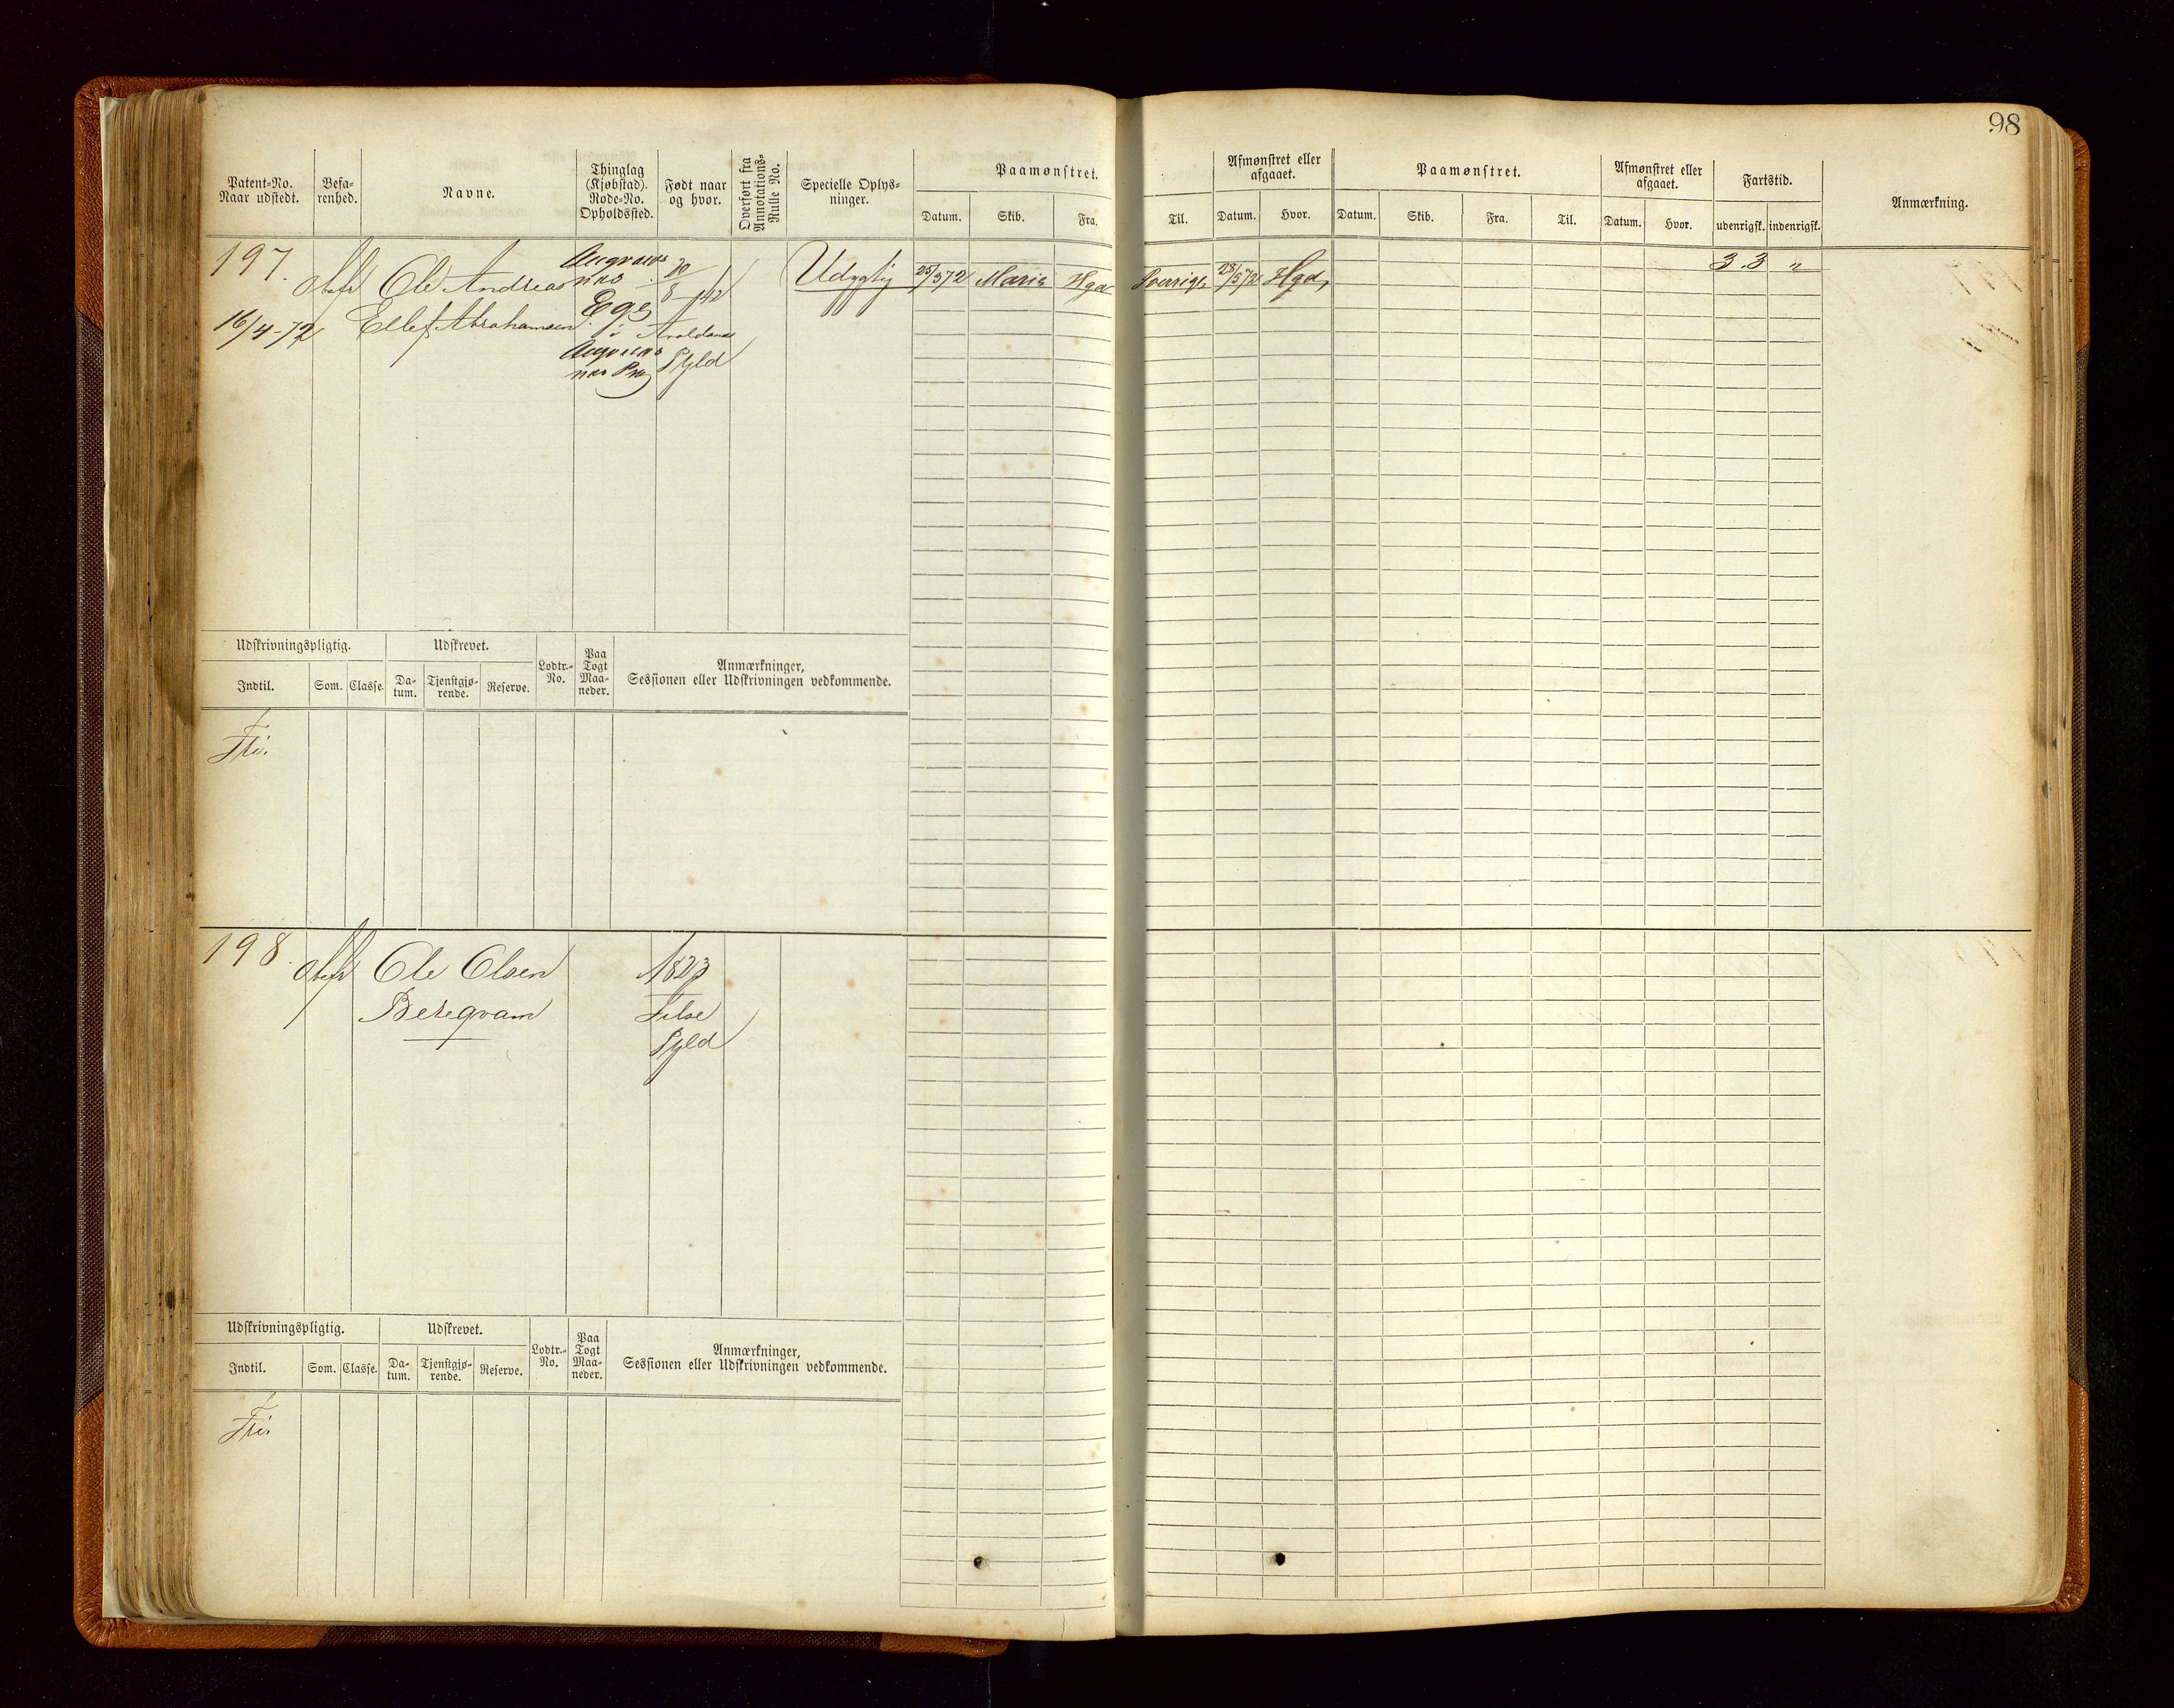 98
Patent-No.
Naar udstedt.
Befa-
renhed.
Navne.
Thinglag
(Kjøbstad).
Rode-No.
Opholdssted.
Født naar
og hvor.
Overført fra
Annotations-
Rulle No.
Specielle Oplys-
ninger.
Paamønstret.
Datum. Skib. Fra.
Til.
Afmønstret eller
afgaaet.
Datum. Hvor.
Paamønstret.
Datum. Skib. Fra. Til.
Afmønstret eller
afgaaet.
Datum. Hvor.
Fartstid.
udenrigsk. indenrigsk.
Anmærkning.
197.
16/4-72
Ole Andreas
Ellef Abrahamsen
Ege
i
20/8-42
Skjold
Udygtig
25/3 72 Maria Hgd
Sverige 28/5 72 Hgd,
3.3 "
Udskrivningspligtig.
Indtil. Som. Classe.
Udskrevet.
Da-
tum.
Tjenstgjø-
rende.
Reserve.
Lodtr.-
No.
Paa
Togt
Maa-
neder.
Anmærkninger,
Sessionen eller Udskrivningen vedkommende.
Fri.
198.
Ole Olsen
1823
Skjold
Udskrivningspligtig.
Indtil. Som. Classe.
Udskrevet.
Da-
tum.
Tjenstgjø-
rende.
Reserve.
Lodtr.-
No.
Paa
Togt
Maa-
neder.
Anmærkninger,
Sessionen eller Udskrivningen vedkommende.
Fri.